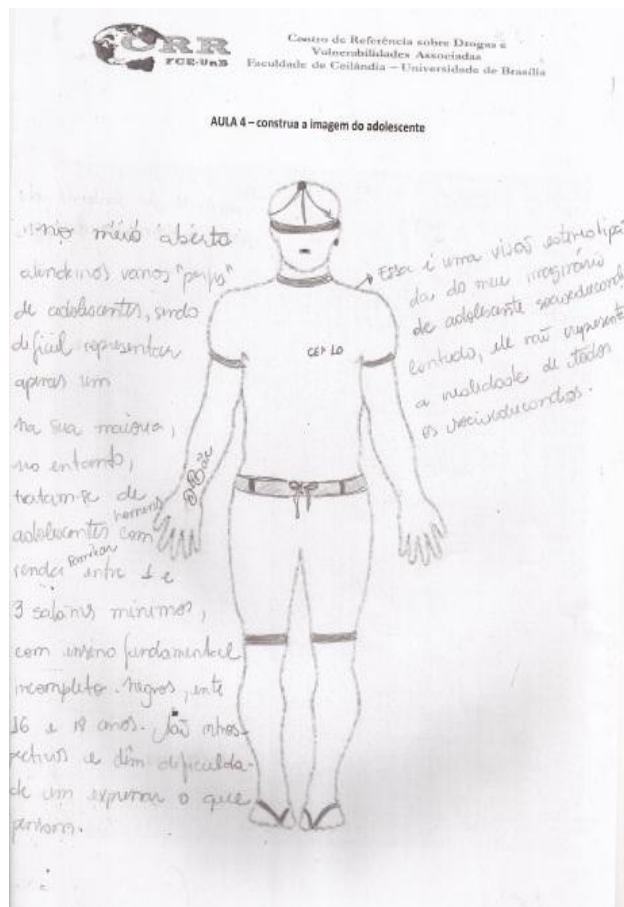 CRR
FCE-UnB
Centro de Referência sobre Drogas e
Vulnerabilidades Associadas
Faculdade de Ceilândia – Universidade de Brasília
AULA 4 – construa a imagem do adolescente
no meio aberto
atendemos varios "perfis"
de adolescentes, sendo
dificil representar
apenas um
na sua maioria,
no entanto,
tratam-se de
adolescentes homens com
renda familiar entre 1 e
3 salarios minimos,
com ensino fundamental
incompleto. negros, entre
16 e 18 anos. São intros-
pectivos e têm dificulda-
de em expressar o que
pensam.
Essa é uma visão estereotipa-
da do meu imaginário
de adolescente socioeducando
contudo, ele não representa
a realidade de todos
os socioeducandos.
mãe